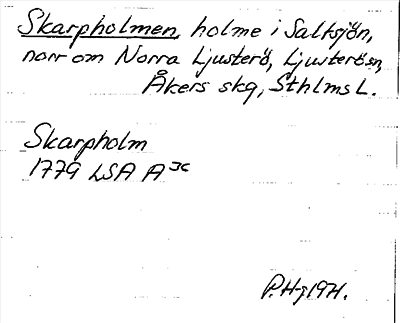 Skarpholmen, holme i Saltsjön,
norr om Norra Ljusterö, Ljusterö sn,
Åkers skg, Sthlms L.
Skarpholm
1779 LSA A 36
P.H-g 1971.